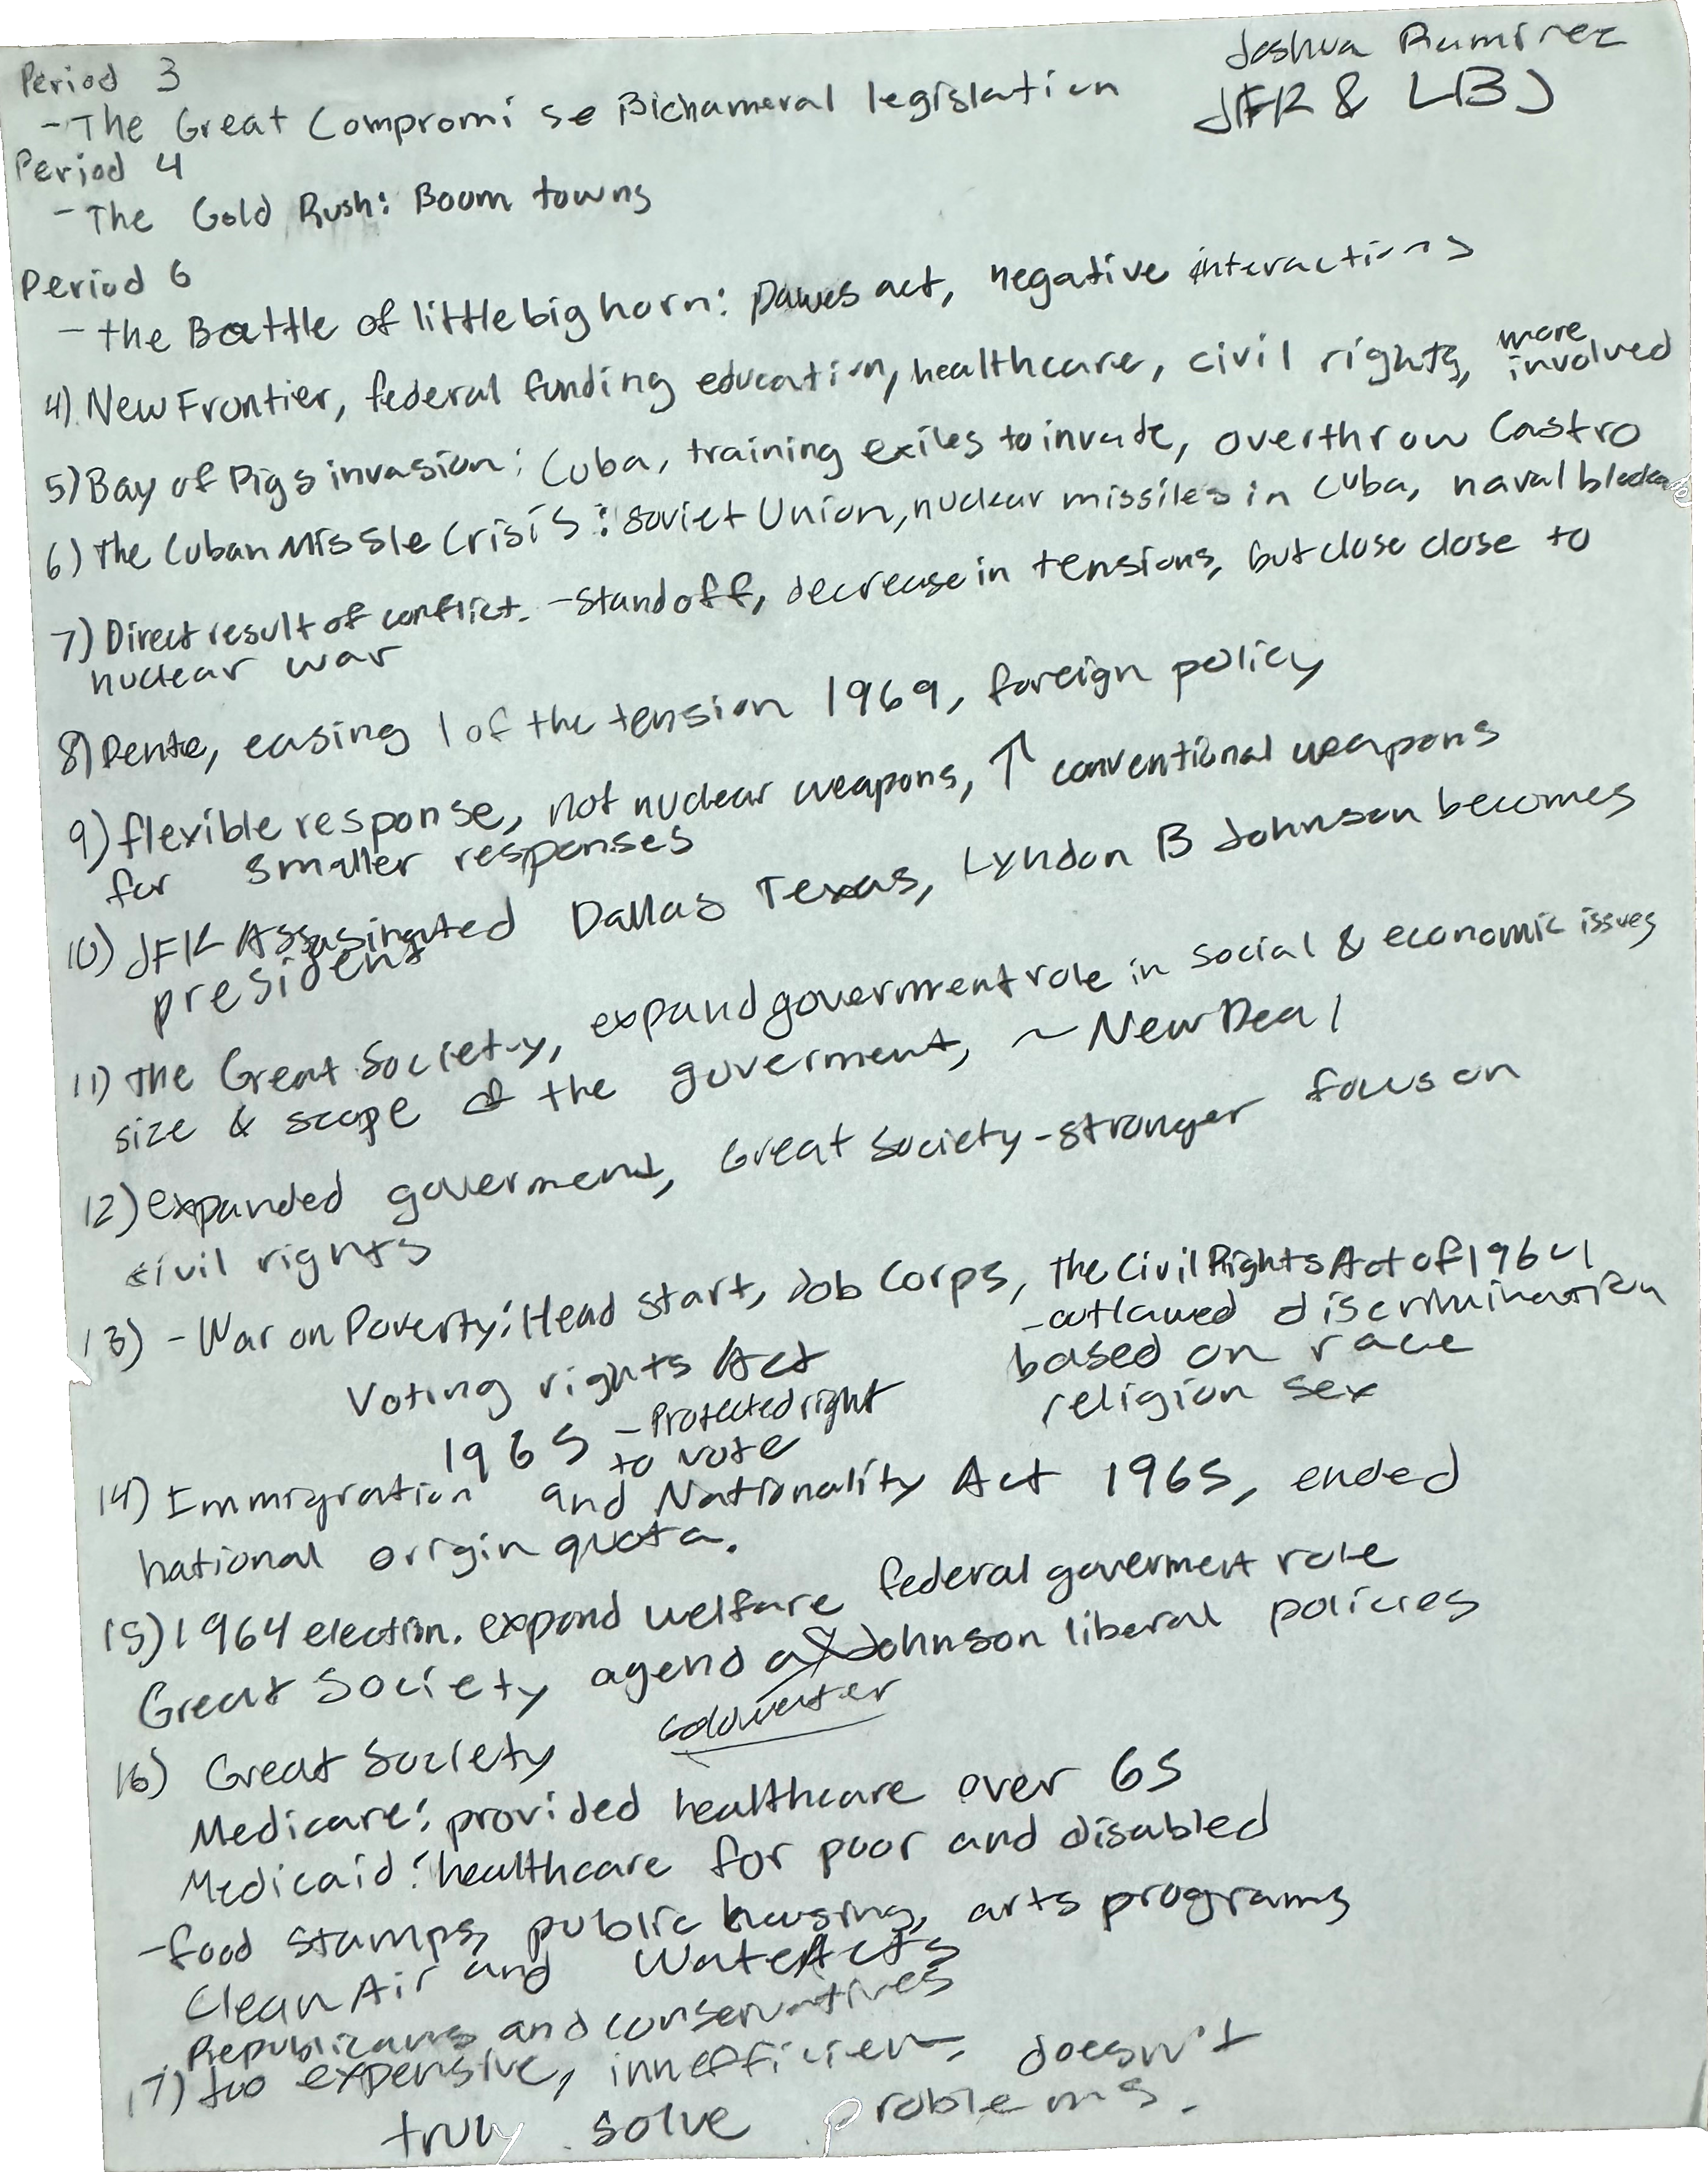 Joshua Ramirez
JFK & LBJ
Period 3
- The Great Compromi se Bichameral legislation
Period 4
- The Gold Rush: Boom towns
Period 6
- the Battle of little big horn: Dawes act, negative interactions
4) New Frontier, federal funding education, healthcare, civil rights, more involved
5) Bay of Pigs invasion: Cuba, training exiles to invade, overthrow Castro
6) The Cuban Missle Crisis: Soviet Union, nuclear missiles in Cuba, naval blockade
7) Direct result of conflict. - Standoff, decrease in tensions, but close close to
nuclear war
8) Dente, easing of the tension 1969, foreign policy
9) flexible response, not nuclear weapons, ↑ conventional weapons
for smaller responses
10) JFK Assasinated Dallas Texas, Lyndon B Johnson becomes
president
11) The Great Society, expand goverment role in social & economic issues
size & scope of the goverment, ~ New Deal
12) expanded goverment, Great Society - stronger focus on
civil rights
13) - War on Poverty: Head start, Job Corps, the Civil Rights Act of 1964
- outlawed discrimination
based on race
religion sex
Voting rights Act
1965 - Protected right
to vote
14) Immigration and Nationality Act 1965, ended
national origin quota.
15) 1964 election. expand welfare federal goverment role
Great Society agenda Johnson liberal policies
Goldwater
16) Great Society
Medicare: provided healthcare over 65
Medicaid: healthcare for poor and disabled
- food stamps, public housing, arts programs
Clean Air and Water Acts
Republicans and conservatives
17) too expensive, innefficient, doesn't
truly solve problems.